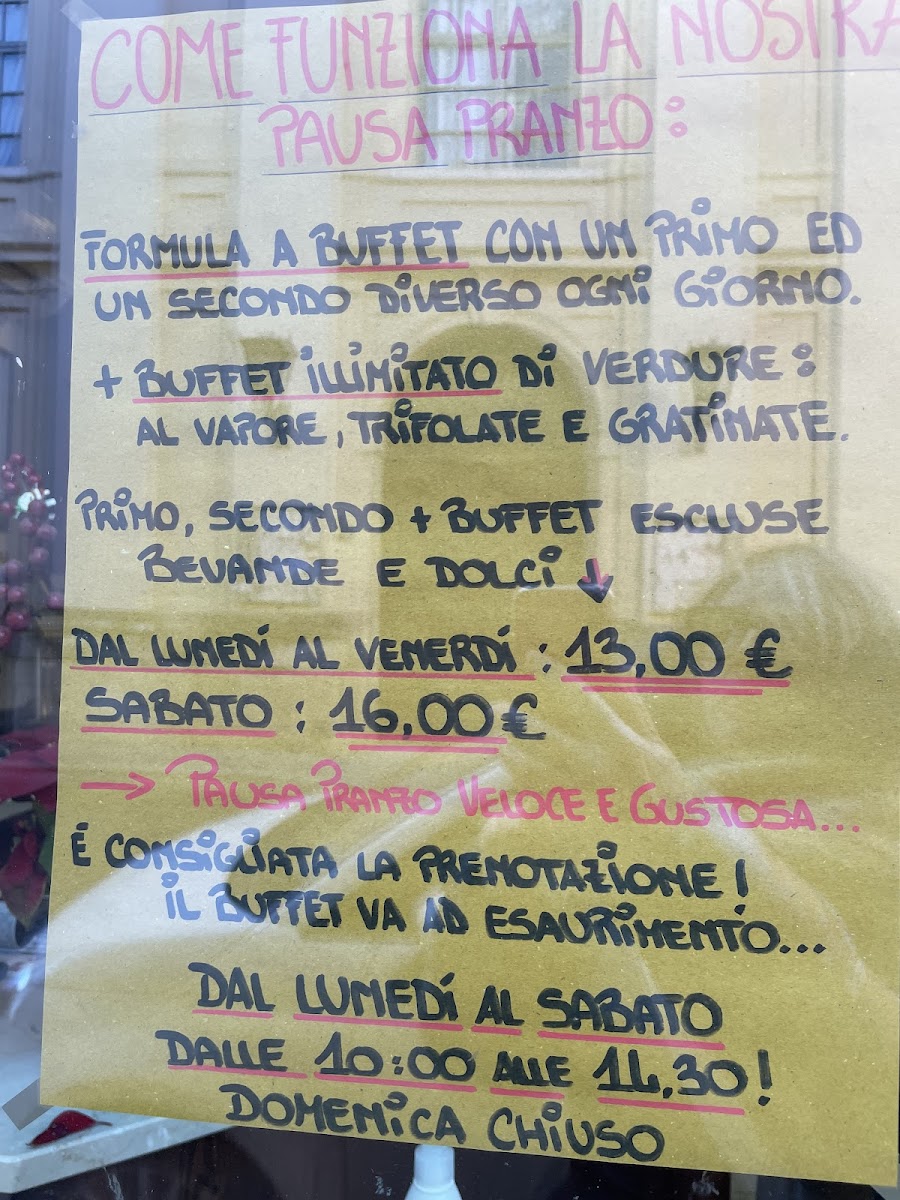 COME FUNZIONA LA NOSTRA
PAUSA PRANZO:
FORMULA A BUFFET CON UN PRIMO ED
UN SECONDO DIVERSO OGNI GIORNO.
+ BUFFET ILLIMITATO DI VERDURE:
AL VAPORE, TRIFOLATE E GRATINATE.
PRIMO, SECONDO + BUFFET ESCLUSE
BEVANDE E DOLCI ↓
DAL LUNEDÍ AL VENERDÍ : 13,00 €
SABATO : 16,00 €
→ PAUSA PRANZO VELOCE E GUSTOSA...
É CONSIGLIATA LA PRENOTAZIONE!
IL BUFFET VA AD ESAURIMENTO...
DAL LUNEDÍ AL SABATO
DALLE 10:00 ALLE 14,30!
DOMENICA CHIUSO